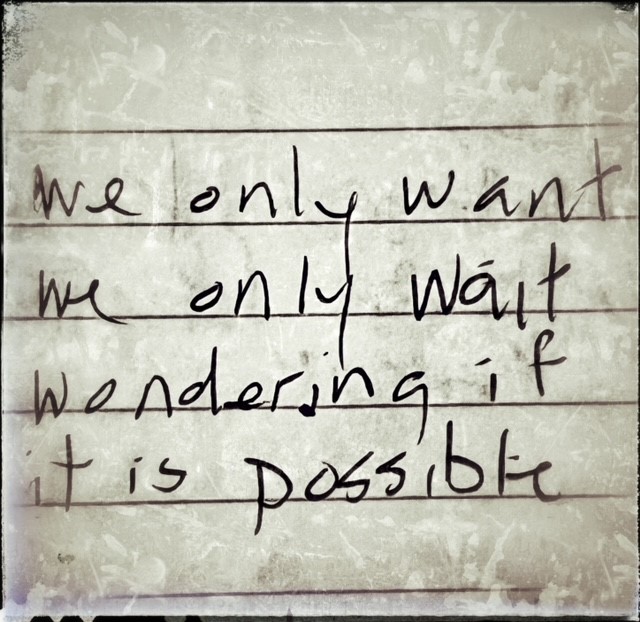 we only want
we only wait
wondering if
it is possible